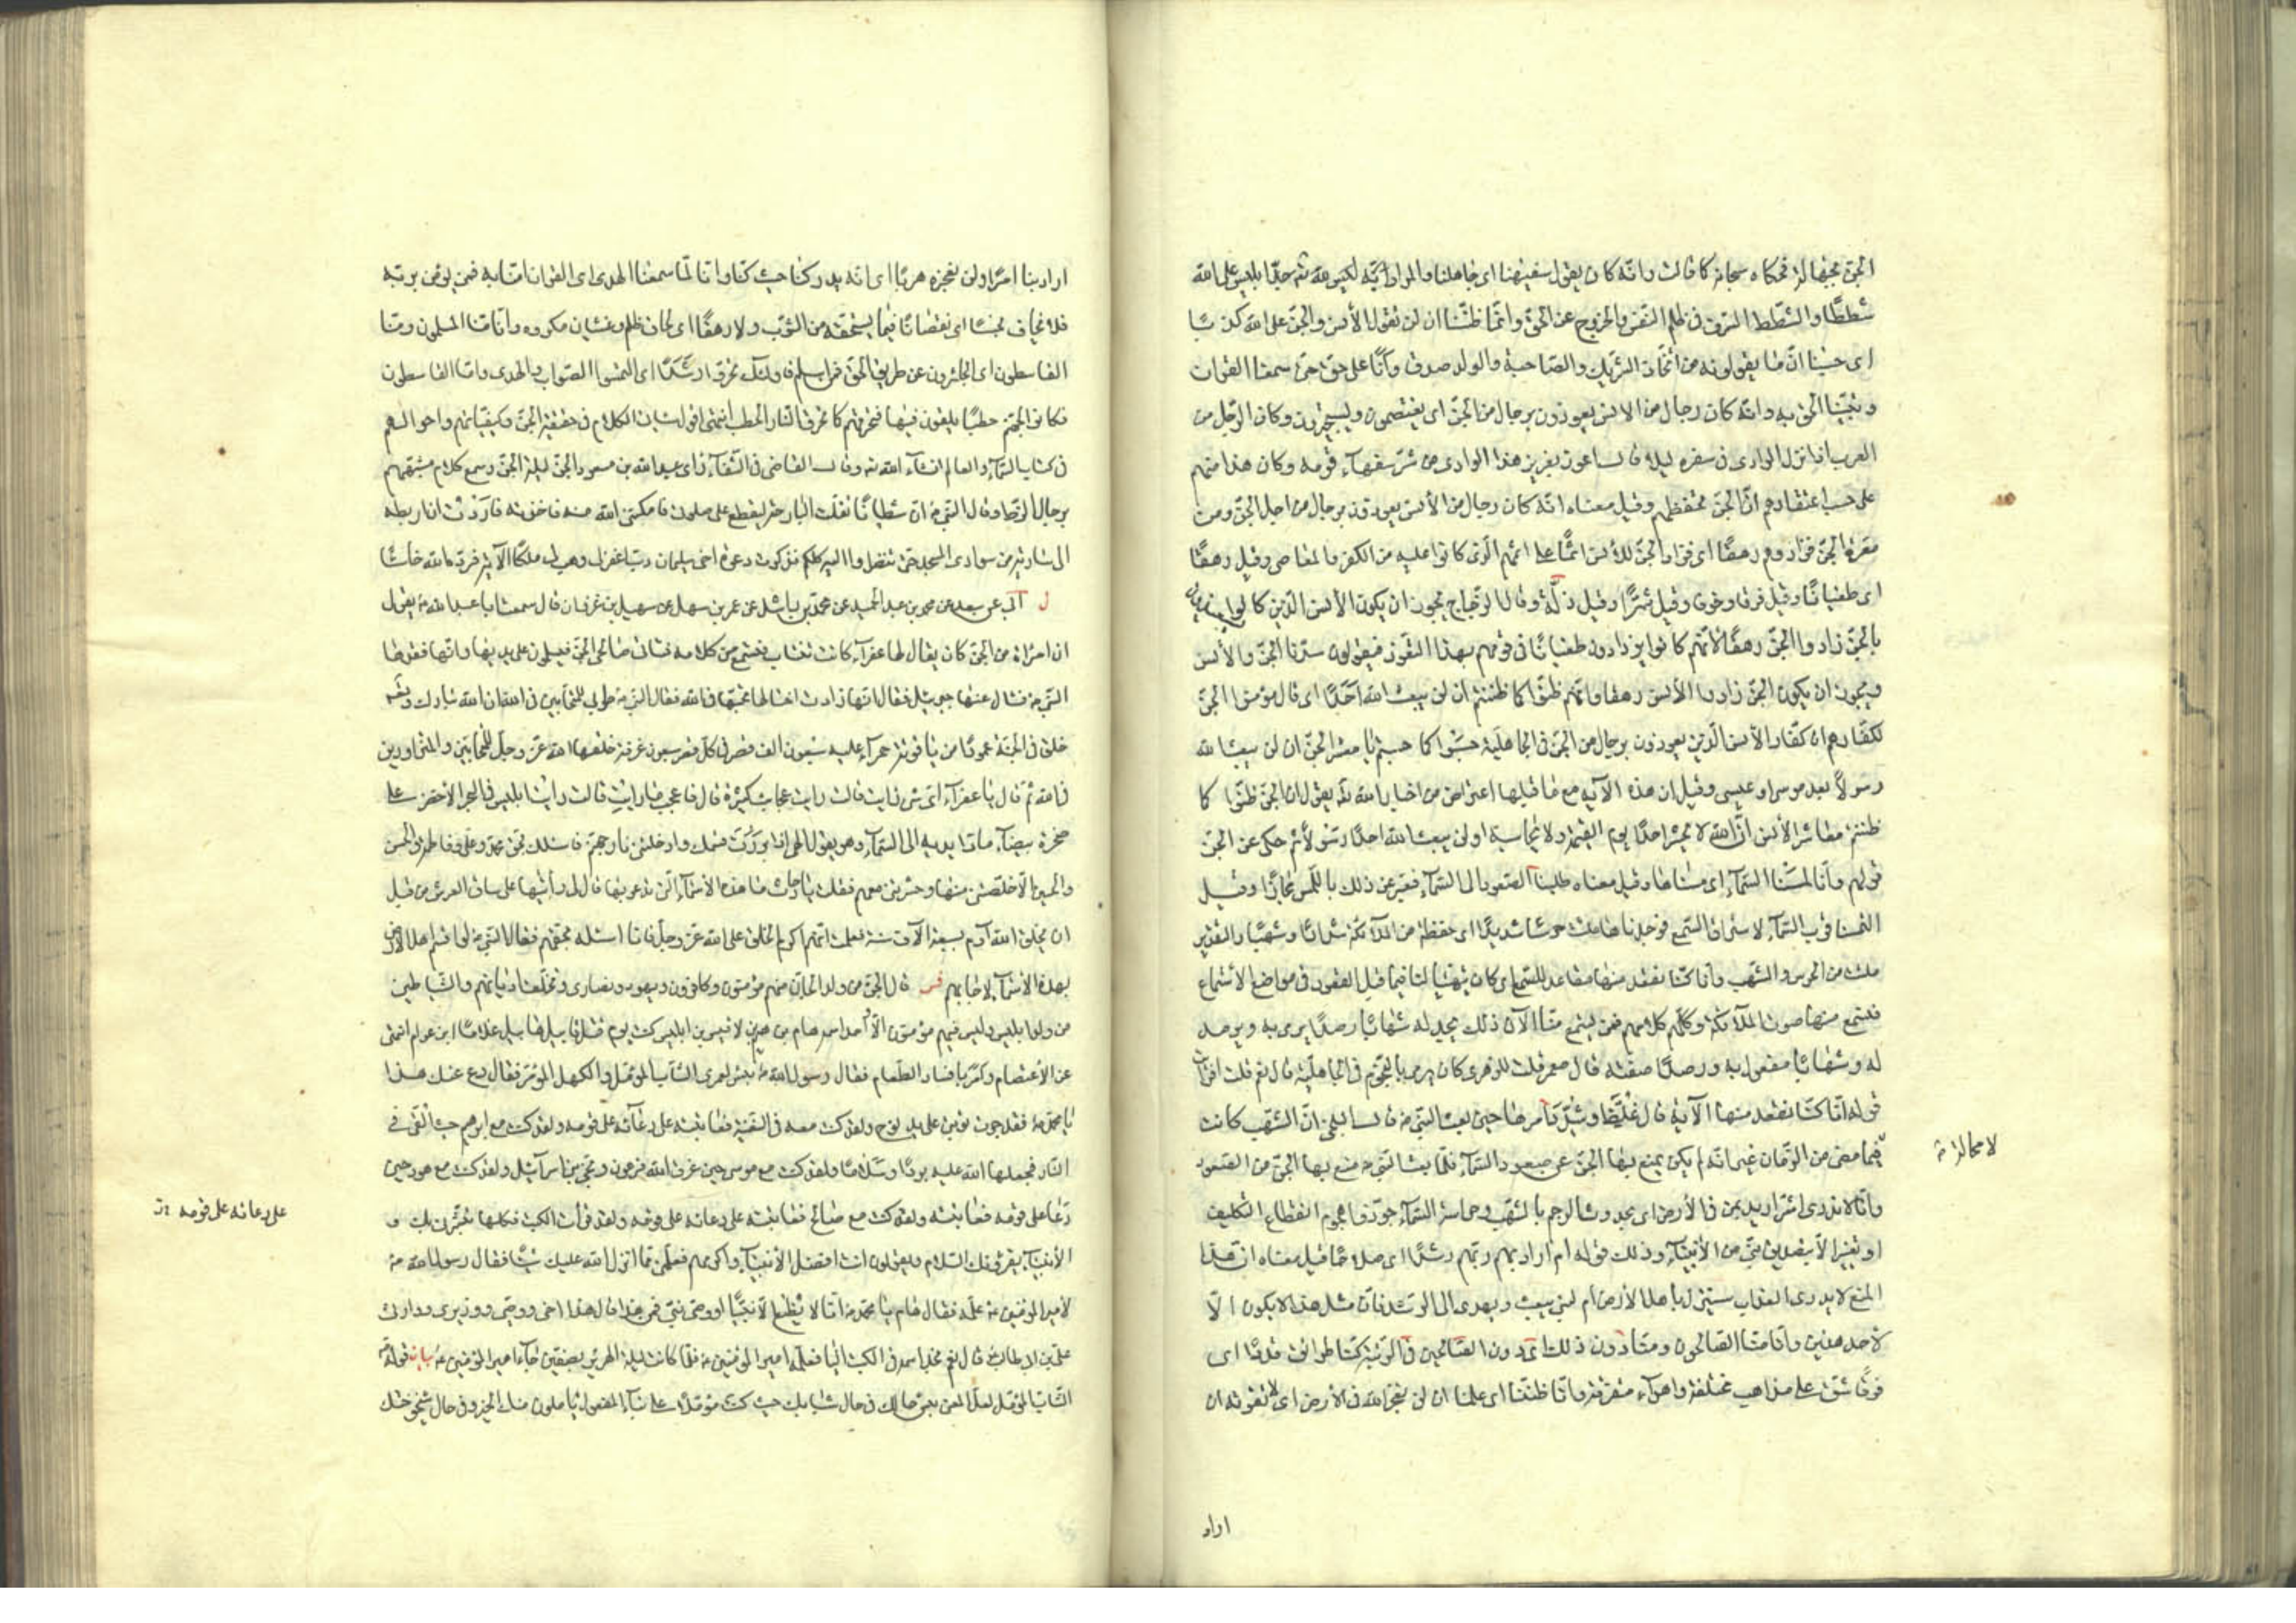 الجنّ محبّها لهٰ فحكاه سبحانه كما قالت وانّه كان يقول سفيهنا اى جاهلنا والمراد ابليس على الله
شططًا والشّطط السّرف فى ظلم النّفس والخروج عن الحقّ وانّا ظننّا ان لن تقول الأنس والجنّ على الله كذبًا
اى حسبنا انّ ما يقولونه من اتّخاذ الشّريك والصّاحبة والولد صدق وانّا على حقّ حتّى سمعنا القرآن
وتبيّنا الحقّ به وانّه كان رجال من الانس يعوذون برجال من الجنّ اى يعتصمون ويستجيرون وكان الرّجل من
العرب اذا نزل الوادى فى سفره ليلا قال اعوذ بعزيز هذا الوادى من شرّ سفهآء قومه وكان هذا منهم
على حسب اعتقادهم انّ الجنّ تحفظهم وقيل معناه انّه كان رجال من الأنس يعوذون برجال من اجل الجنّ ومن
معرّة الجنّ فزادوهم رهقًا اى فزاد الجنّ للأنس اثمًا على اثمهم الّذى كانوا عليه من الكفر والمعاصى وقيل رهقًا
اى طغيانًا وقيل فرقا وخوفا وقيل شرًّا وقيل ذلّة وقال الزّجّاج يجوز ان يكون الأنس الّذين كانوا يستعيذون
بالجنّ زادوا الجنّ رهقًا لأنّهم كانوا يزدادون طغيانًا فى قومهم بهذا التعوّذ فيقولون سدنا الجنّ والأنس
ويجوز ان يكون الجنّ زادوا الأنس رهقا وانّهم ظنّوا كما ظننتم ان لن يبعث الله احدًا اى قال مؤمنوا الجنّ
لكفّارهم ان كفّار الأنس الّذين يعوذون برجال من الجنّ فى الجاهليّة حسبوا كما حسبتم يا معشر الجنّ ان لن يبعث الله
رسولًا بعد موسى او عيسى وقيل ان هذه الآية مع ما قبلها اعتراض من اخبار الله تع يقول ان الجنّ ظنّوا كما
ظننتم معاشر الأنس انّ الله لا يحشر احدًا يوم القيمة ولا يحاسبه او لن يبعث الله احدًا رسولًا ثم حكى عن الجنّ
قولهم وانّا لمسنا السّمآء اى مسسناها وقيل معناه طلبنا الصّعود الى السّمآء فعبّر عن ذلك باللّمس مجازًا وقيل
التمسنا قرب السّمآء لاستراق السّمع فوجدناها ملئت حرسًا شديدًا اى حفظة من الملآئكة شدادًا وشهبًا والتقدير
ملئت من الحرس والشّهب وانّا كنّا نقعد منها مقاعد للسّمع اى كان يتهيّأ لنا فيما قبل القعود فى مواضع الأستماع
فنسمع منها صوت الملآئكة وكلامهم فمن يستمع منّا الآن ذلك يجد له شهابًا رصدًا يرمى به ويرصد
له وشهابًا مفعول به ورصدًا صفته قال معمر قلت للزهرى كان يرمى بالنّجوم فى الجاهليّة قال نعم قلت افرأيت
قوله انّا كنّا نقعد منها الآية قال غلّظ وشدّد امرها حين بعث النّبى ص قال البلخى انّ الشّهب كانت
لا محالة ص
فيما مضى من الزّمان غير انّه لم يكن يمنع بها الجنّ عن صعود السّمآء فلمّا بعث النّبى ص منع بها الجنّ من الصّعود
وانّا لا ندرى اشرّ اريد بمن فى الأرض اى بحدوث الرجم بالشّهب وحراسة السّمآء جوّزنا هجوم انقطاع التكليف
او تغيير الأمر بتصديق نبىّ من الأنبيآء وذلك قوله ام اراد بهم ربّهم رشدًا اى صلاحًا وقيل معناه انّ هذا
المنع لا يدرى العذاب سينزل بأهل الأرض ام لنبى يبعث ويهدى الى الرّشد فانّ مثل هذا لا يكون الّا
لأحد هذين وانّا منّا الصّالحون ومنّا دون ذلك اى دون الصّالحين فى الرّتبة كنّا طرائق قددًا اى
فرقًا شتّى على مذاهب مختلفة واهوآء متفرّقة وانّا ظننّا اى علمنا ان لن نعجز الله فى الأرض اى لا نفوته ان
اراد
اراد بنا امرًا ولن نعجزه هربًا اى انّه يدركنا حيث كنّا وانّا لمّا سمعنا الهدى اى القرآن امنّا به فمن يؤمن بربّه
فلا يخاف بخسًا اى نقصانًا فيما يستحقّه من الثّواب ولا رهقًا اى لحاق ظلم وغشيان مكروه وانّا منّا المسلمون ومنّا
القاسطون اى الجائرون عن طريق الحقّ فمن اسلم فاولئك تحرّوا رشدًا اى التمسوا الصّواب والهدى وامّا القاسطون
فكانوا لجهنّم حطبًا يلقون فيها فتحرقهم كما تحرق النّار الحطب انتهى اقول سيأتى الكلام فى حقيقة الجنّ وكيفيّاتهم واحوالهم
فى كتاب السّمآء والعالم انشآء الله تع وقال القاضى فى الشّفآء راى عبد الله بن مسعود الجنّ ليلة الجنّ وسمع كلامهم وشبّههم
برجال الزّط وقال النّبى ص انّ شيطانًا تفلّت البارحة ليقطع على صلوتى فامكننى الله منه فاخذته فاردت ان اربطه
الى سارية من سوارى المسجد حتّى تنظروا اليه كلّكم فذكرت دعوة اخى سليمان ربّ اغفر لى وهب لى ملكًا الآية فردّه الله خاسئًا
ل ابى عن سعد عن محمد بن عبد الحميد عن محمّد بن راشد عن عمر بن سهل عن سهيل بن غزوان قال سمعت ابا عبد الله ع يقول
ان امرأة من الجنّ كان يقال لها عفرآء كانت تنتاب النبى فتسمع من كلامه فتأتى صالحى الجنّ فيسلمون على يديها وانّها فقدها
النّبى ص فسأل عنها جبرئيل فقال انّها زارت اختا لها تحبّها فى الله فقال النّبى ص طوبى للمتحابّين فى الله ان الله تبارك وتع
خلق فى الجنّة عمودًا من ياقوتة حمرآء عليه سبعون الف قصر فى كلّ قصر سبعون غرفة خلقها الله عزّ وجلّ للمتحابّين والمتزاورين
فى الله ثم قال يا عفرآء اىّ شىء رايت قالت رايت عجائب كثيرة قال فاعجب ما رايت قالت رايت ابليس فى البحر الأخضر على
صخرة بيضآء مادّا يديه الى السّمآء وهو يقول الهى اذا بررت قسمك وادخلتنى نار جهنّم فاسئلك بحقّ محمّد وعلى وفاطمة والحسن
والحسين الّا خلّصتنى منها وحشرتنى معهم فقلت يا حارث ما هذه الأسمآء الّتى تدعو بها قال لى رأيتها على ساق العرش من قبل
ان يخلق الله آدم بسبعة الآف سنة فعلمت انّهم اكرم الخلق على الله عزّ وجلّ فانا اسئله بحقّهم فقال النّبى ص لو اقسم اهل الأرض
بهذه الأسمآء لاجابهم فس قال الجنّ من ولد الجانّ منهم مؤمنون وكافرون ويهود ونصارى وتختلف اديانهم والشّياطين
من ولد ابليس وليس فيهم مؤمنون الّا احد اسمه هام بن هيم بن لاقيس بن ابليس كنت يوم قتل قابيل هابيل غلامًا ابن عوام انهى
عن الأعتصام وآمر بافساد الطّعام فقال رسول الله ص بئس لعمرى الشّاب المؤمّل والكهل المؤمّر فقال دع عنك هذا
يا محمّد ص فقد جرت توبتى على يد نوح ولقد كنت معه فى السّفينة فعاتبته على دعآئه على قومه ولقد كنت مع ابرهيم حيث القى فى
النّار فجعلها الله عليه بردًا وسلامًا ولقد كنت مع موسى حين غرق الله فرعون ونجّى بنى اسرآئيل ولقد كنت مع هود حين
دعا على قومه فعاتبته ولقد كنت مع صالح فعاتبته على دعائه على قومه ولقد قرأت الكتب فكلها تبشّرنى بك و
على دعائه على قومه
الأنبيآء يقرؤنك السّلام ويقولون انت افضل الأنبيآء واكرمهم فعلّمنى ممّا انزل الله عليك شيئًا فقال رسول الله ص
لأمير المؤمنين ع علّمه فقال هام يا محمّد ص انّا لا نطيع الّا نبيًّا او وصىّ نبىّ فمن هذا قال هذا اخى ووصيّى ووزيرى ووارثى
علىّ بن ابى طالب ع قال نعم نجد اسمه فى الكتب اليا فعلّمه امير المؤمنين ع فلمّا كانت ليلة الهرير بصفّين جآء امير المؤمنين ع بيان قوله ص
الشّاب المؤمّل لعلّ المعنى بئس حالك فى حال شبابك حيث كنت مؤمّلًا على بنآء المفعول يأملون منك الخير وفى حال شيخوختك